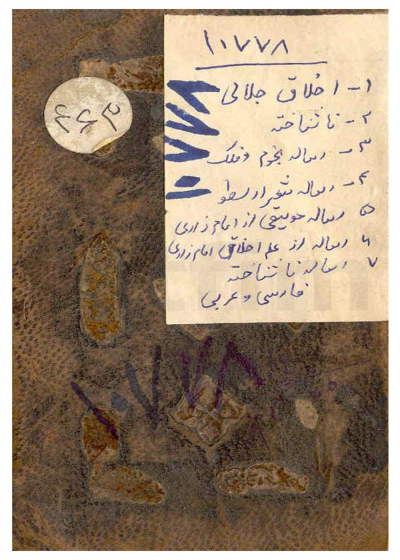 ۱۰۷۷۸
۱- اخلاق جلالی
۲- ناشناخته
۳- رساله نجوم و فلک
۴- رساله شجر ارسطو
۵ رساله موسیقی از امام رازی
۶ رساله از علم اخلاق امام رازی
۷ رساله ناشناخته
فارسی و عربی
۱۰۷۷۸
۱۰۷۷۸